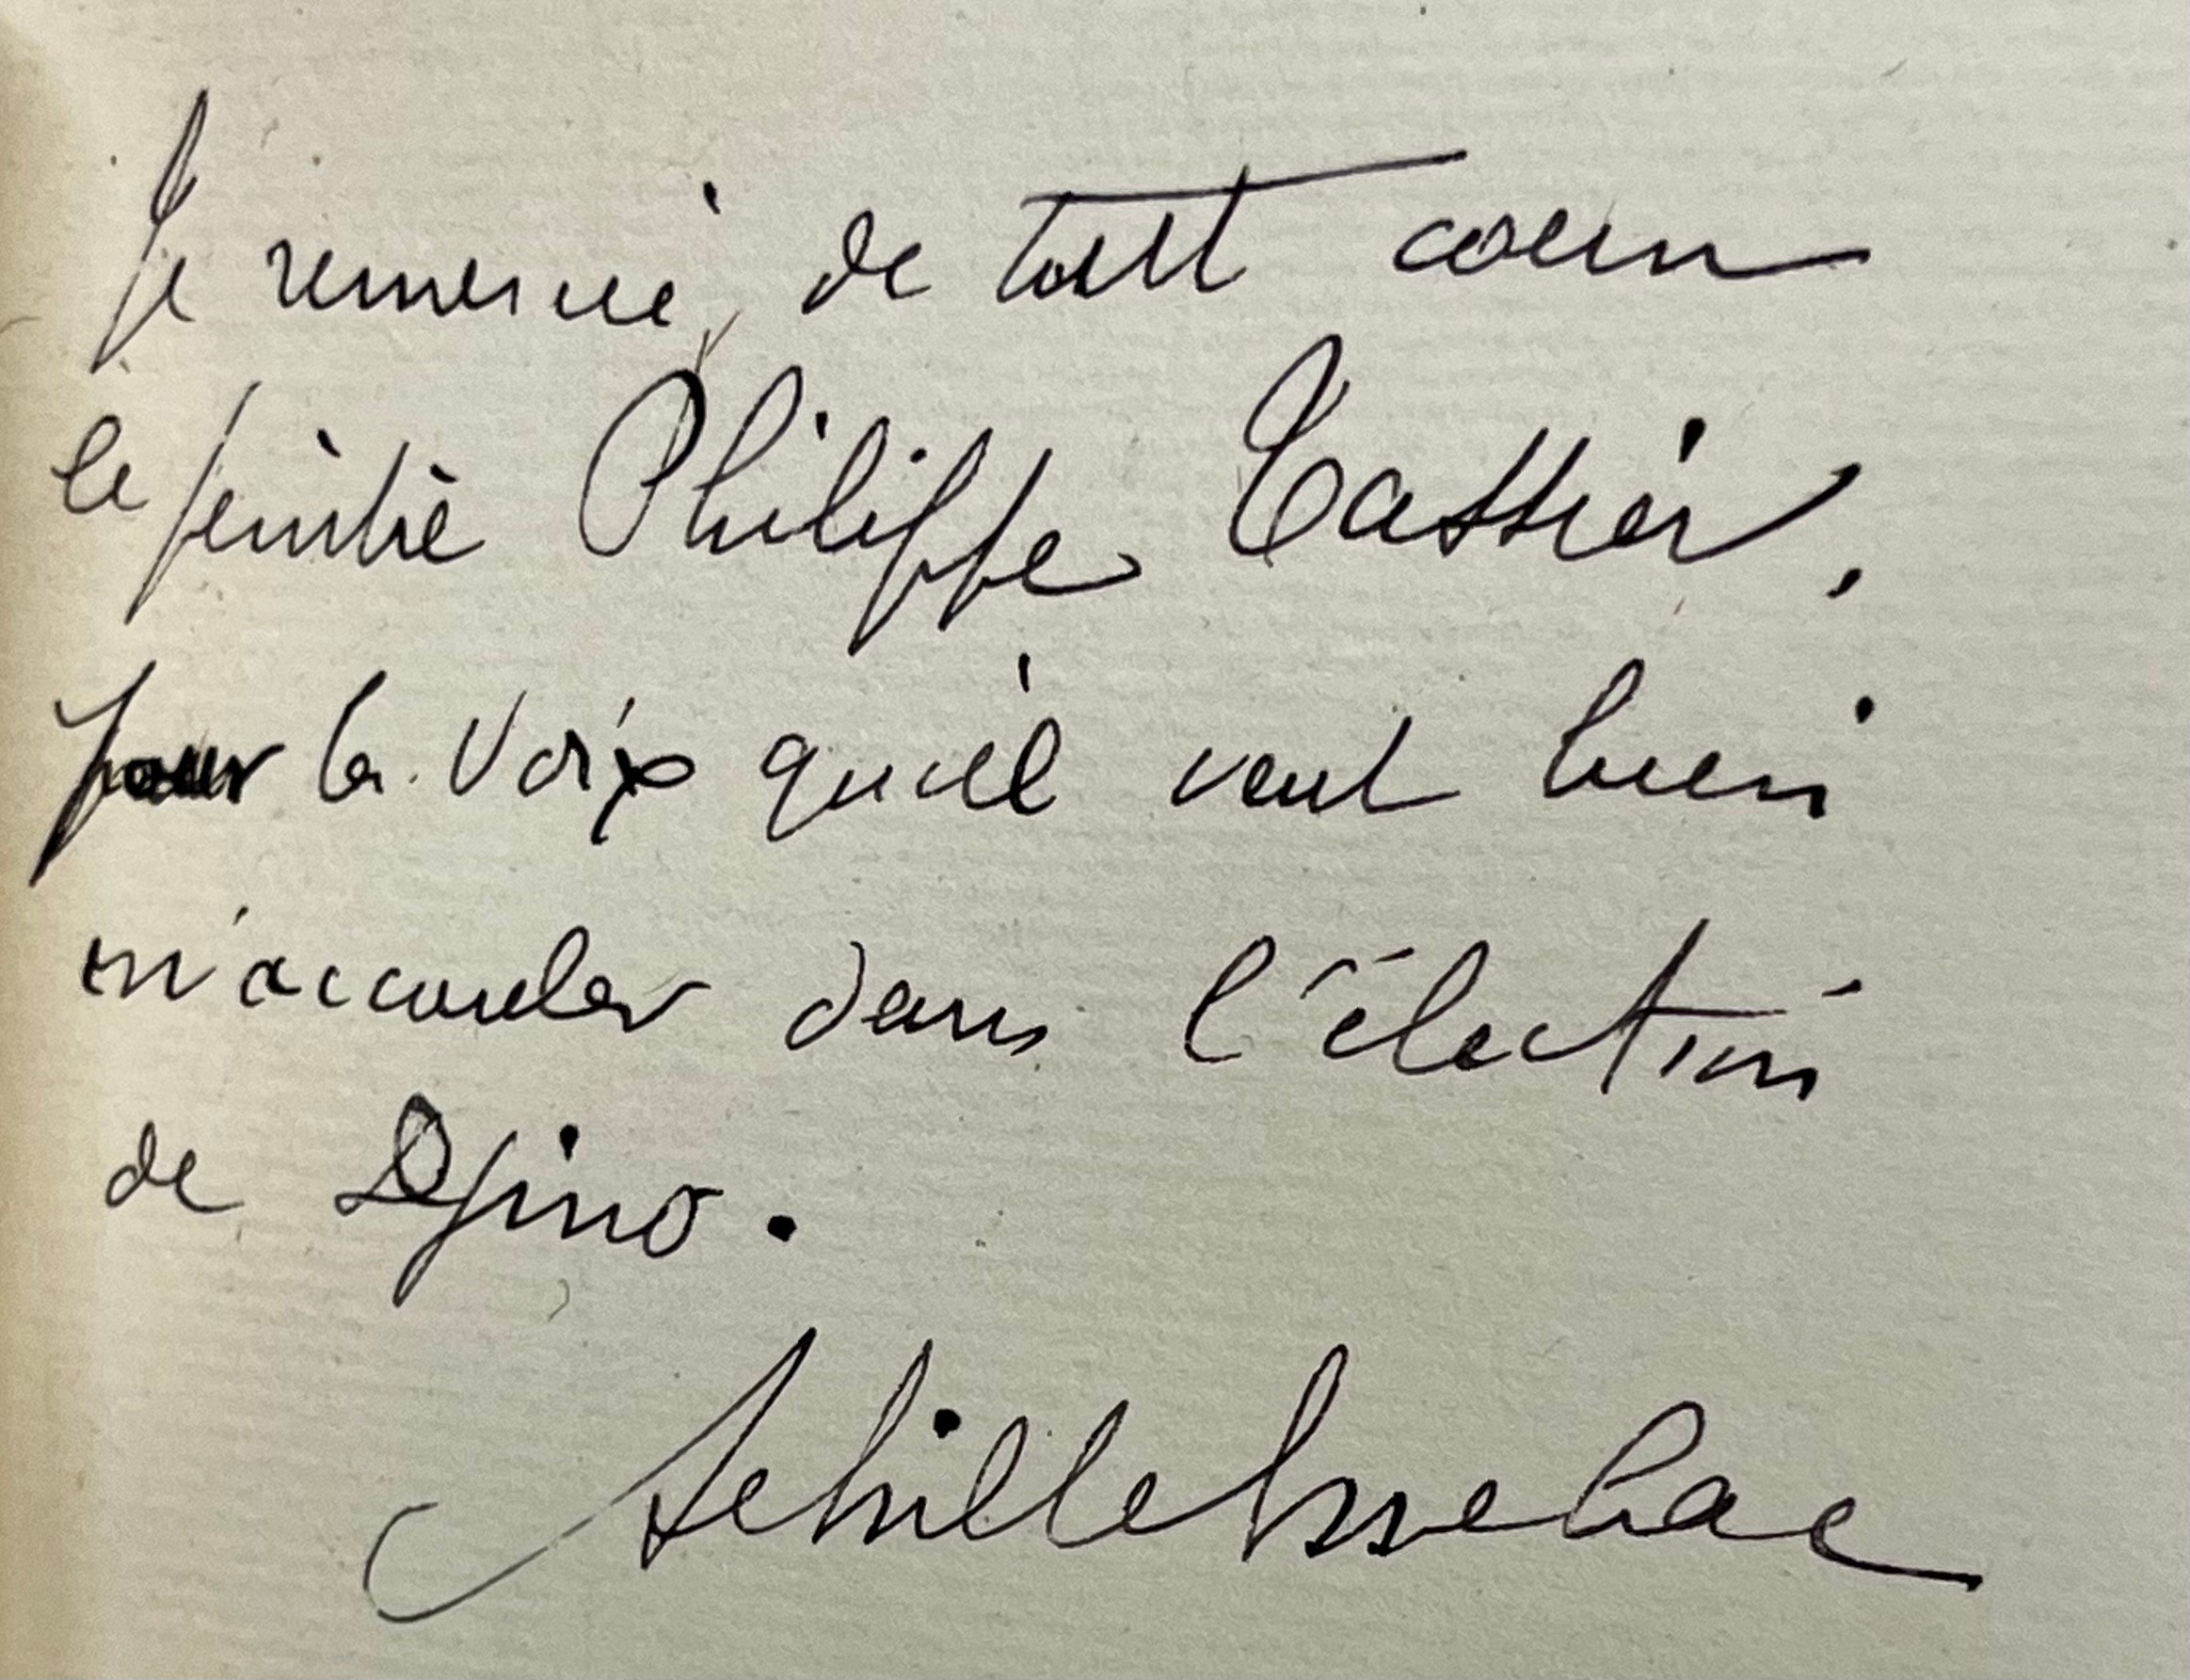 Je remercie, de tout coeur
le peintre Philippe Tassier,
pour la voix qu'il veut bien
m'accorder dans l'élection
de Djino.
Achille Essebac